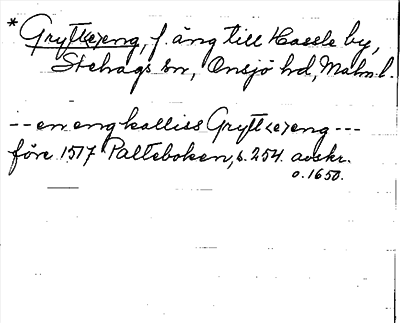 * Grytt<e>eng, f. äng till Hassle by,
Stehags sn, Onsjö hd, Malm. l.
-- en eng kalliss Grytt<e>eng ---
före 1517 Palteboken, s. 254. avskr.
o. 1650.